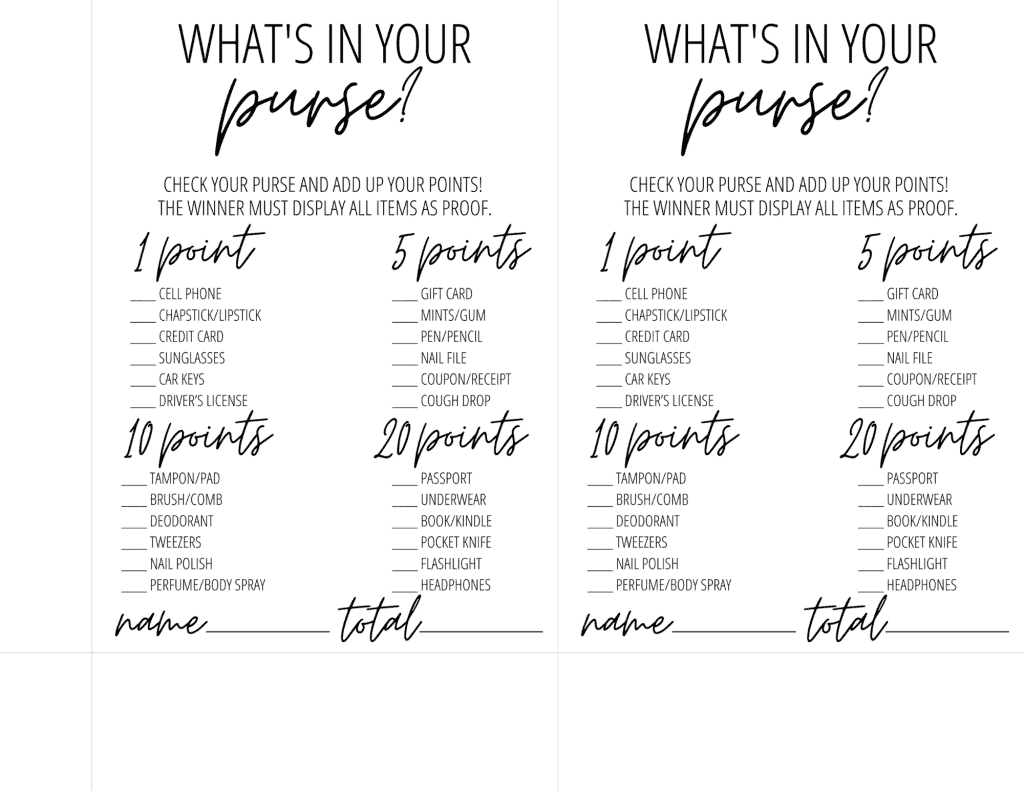 WHAT'S IN YOUR
purse?
CHECK YOUR PURSE AND ADD UP YOUR POINTS!
THE WINNER MUST DISPLAY ALL ITEMS AS PROOF.
1 point
____ CELL PHONE
____ CHAPSTICK/LIPSTICK
____ CREDIT CARD
____ SUNGLASSES
____ CAR KEYS
____ DRIVER'S LICENSE
5 points
____ GIFT CARD
____ MINTS/GUM
____ PEN/PENCIL
____ NAIL FILE
____ COUPON/RECEIPT
____ COUGH DROP
10 points
____ TAMPON/PAD
____ BRUSH/COMB
____ DEODORANT
____ TWEEZERS
____ NAIL POLISH
____ PERFUME/BODY SPRAY
20 points
____ PASSPORT
____ UNDERWEAR
____ BOOK/KINDLE
____ POCKET KNIFE
____ FLASHLIGHT
____ HEADPHONES
name____________ total____________
WHAT'S IN YOUR
purse?
CHECK YOUR PURSE AND ADD UP YOUR POINTS!
THE WINNER MUST DISPLAY ALL ITEMS AS PROOF.
1 point
____ CELL PHONE
____ CHAPSTICK/LIPSTICK
____ CREDIT CARD
____ SUNGLASSES
____ CAR KEYS
____ DRIVER'S LICENSE
5 points
____ GIFT CARD
____ MINTS/GUM
____ PEN/PENCIL
____ NAIL FILE
____ COUPON/RECEIPT
____ COUGH DROP
10 points
____ TAMPON/PAD
____ BRUSH/COMB
____ DEODORANT
____ TWEEZERS
____ NAIL POLISH
____ PERFUME/BODY SPRAY
20 points
____ PASSPORT
____ UNDERWEAR
____ BOOK/KINDLE
____ POCKET KNIFE
____ FLASHLIGHT
____ HEADPHONES
name____________ total____________